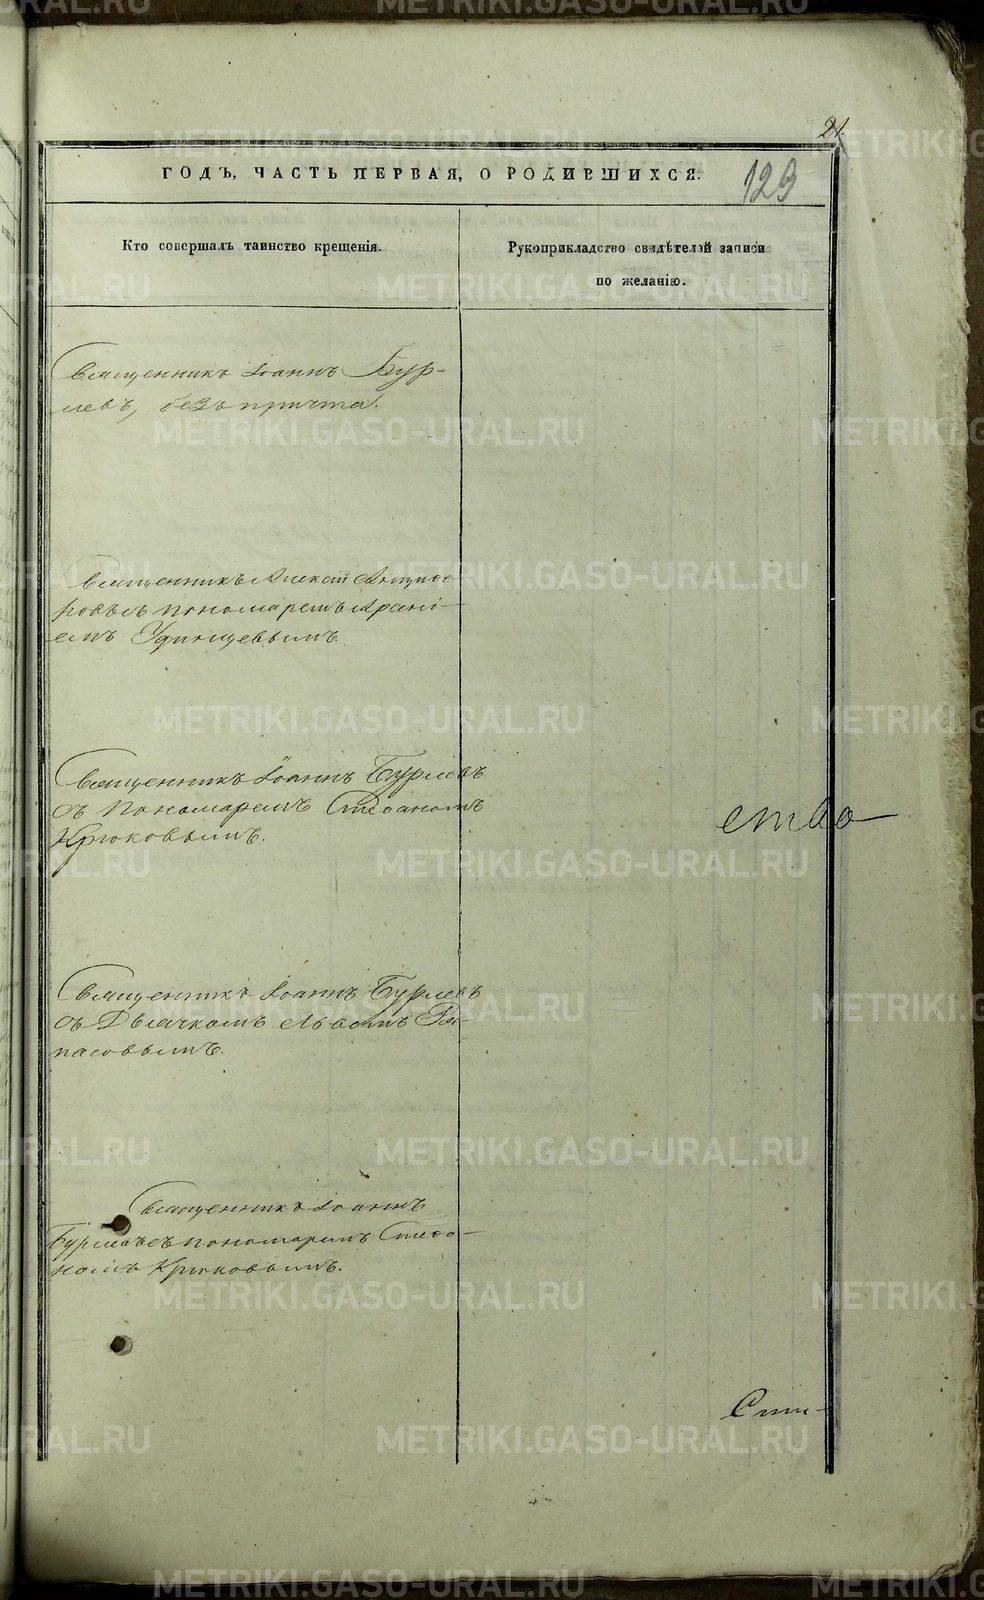 21.
ГОДЪ, ЧАСТЬ ПЕРВАЯ, О РОДИВШИХСЯ.
123
Кто совершалъ таинство крещенія.
Рукоприкладство свидѣтелей записи
по желанію.
Священникъ Іоаннъ Бур-
левъ, безъ причта.
Священникъ Алексій
съ пономаремъ
емъ Удинцевымъ.
Священникъ Іоаннъ Бурлевъ
съ Пономаремъ Стефаномъ
Крюковымъ.
ство
Священникъ Іоаннъ Бурлевъ
съ Дьячкомъ Львомъ
пасовымъ.
Священникъ Іоаннъ
Бурлевъ съ пономаремъ Стефа-
номъ Крюковымъ.
METRIKI.GASO-URAL.RU